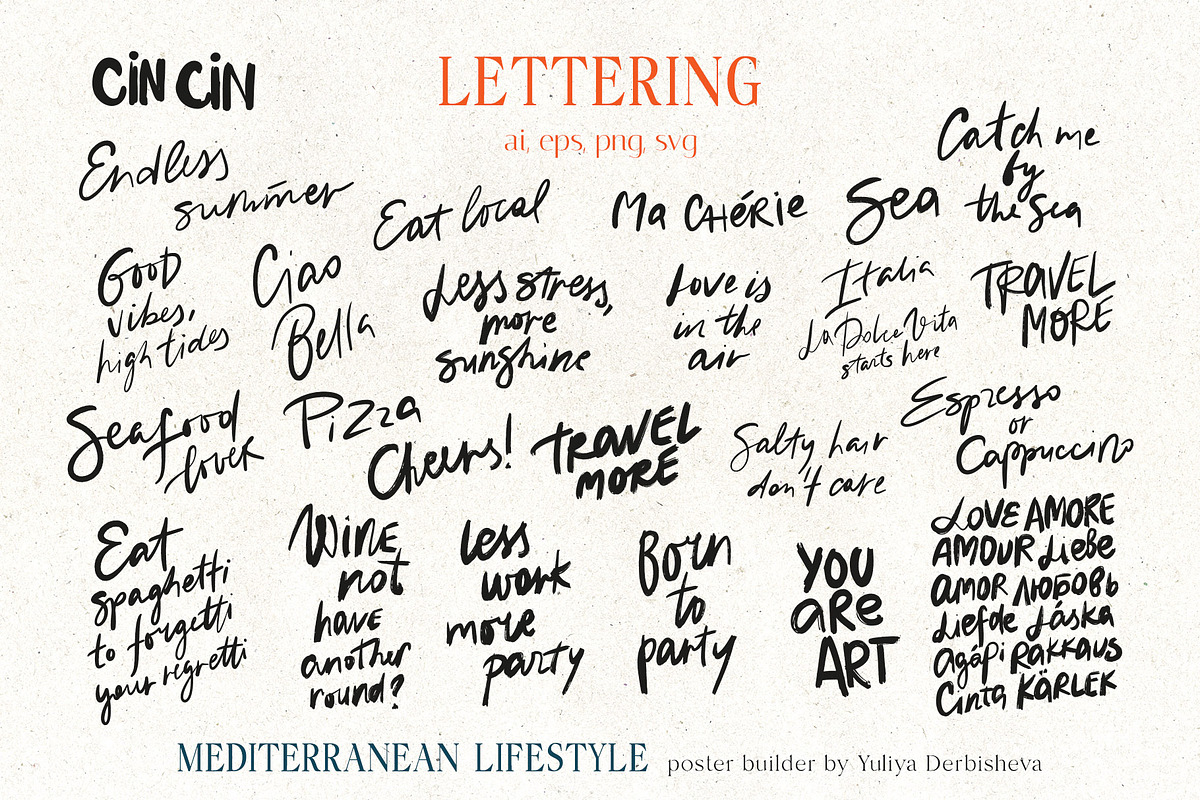 CiN CiN
LETTERING
ai, eps, png, svg
Endless
summer
Eat local
Ma CHéRie
Sea
Catch me
by
the Sea
Good
vibes,
high tides
Ciao
Bella
Less stress,
more
sunshine
Love is
in the
air
Italia
La Dolce Vita
starts here
TRAVEL
MORE
Seafood
lover
Pizza
Cheers!
TRAVEL
MORE
Salty hair
don't care
Espresso
or
Cappuccino
Eat
spaghetti
to forgetti
your regretti
Wine
not
have
another
round?
less
work
more
party
Born
to
party
YOU
aRe
ART
LOVE AMORE
AMOUR Liebe
AMOR ЛЮБОВЬ
Liefde Láska
agápi Rakkaus
Cinta KÄRLEK
MEDITERRANEAN LIFESTYLE poster builder by Yuliya Derbisheva